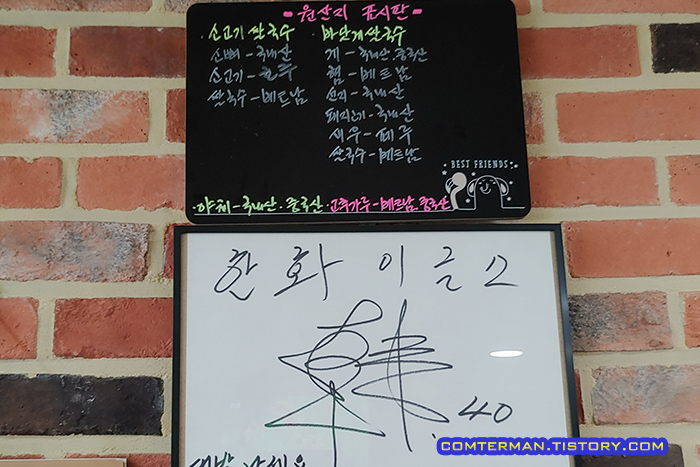 - 원산지 표시판 -
· 소고기 쌀국수
소뼈 - 국내산
소고기 - 호주
쌀국수 - 베트남
· 바닷게 쌀국수
게 - 국내산. 중국산
햄 - 베트남
선지 - 국내산
돼지고기 - 국내산
새우 - 페루
쌀국수 - 베트남
BEST FRIENDS
· 야채 - 국내산 · 중국산 · 고추가루 - 베트남. 중국산
한화 이글스
40
대박 나세요
COMTERMAN.TISTORY.COM